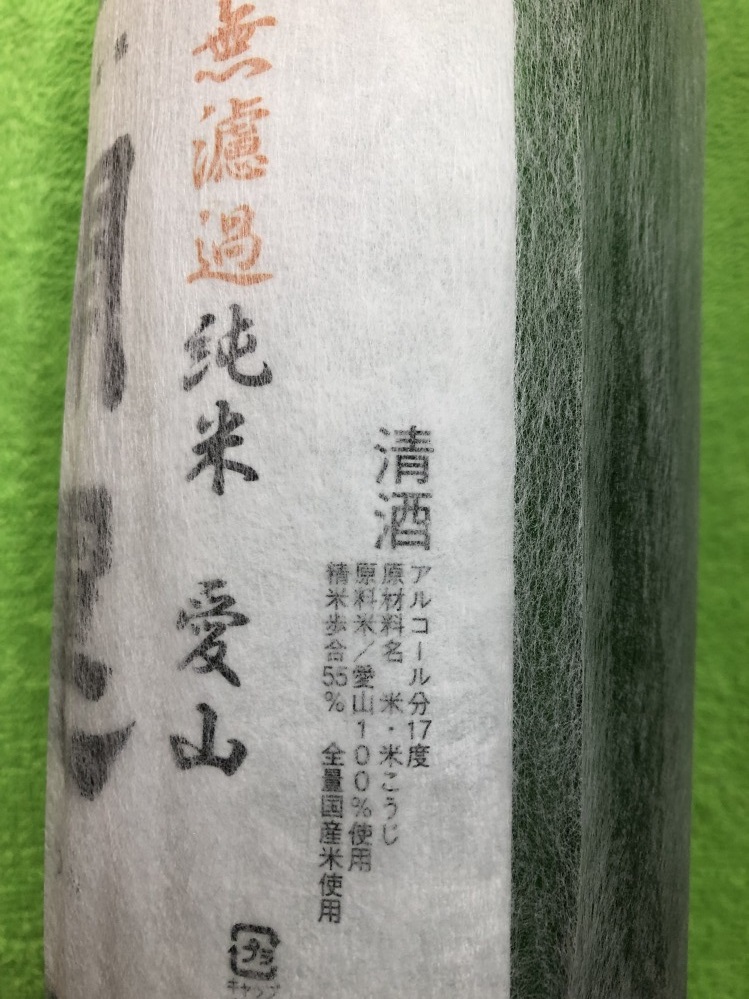 清酒
アルコール分17度
原材料名 米・米こうじ
原料米/愛山100%使用
精米歩合55% 全量国産米使用
無濾過純米 愛山
プラ
キャップ